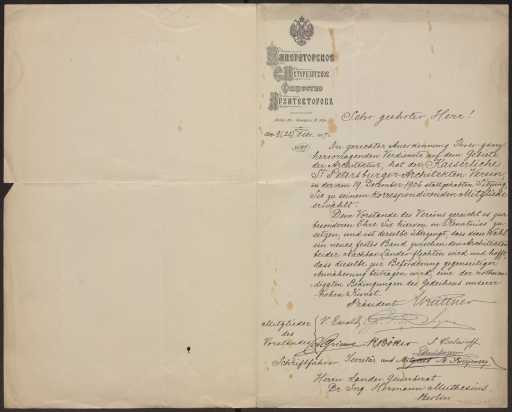 Императорское
С. Петербургское
Общество
Архитекторовъ
Sehr geehrter Herr!
In gerechter Anerkennung Ihrer ganz
hervorragenden Verdienste auf dem Gebiete
der Architektur, hat der Kaiserliche
St. Petersburger-Architekten Verein
in der am 19. Dezember 1906 stattgehabten Sitzung,
Sie zu seinem Korrespondirenden Mitgliede
erwählt.
Dem Vorstande des Vereins gereicht es zur
besonderen Ehre Sie hiervon in Kenntniss zu
setzen, und ist derselbe überzeugt, dass diese Wahl
ein neues festes Band zwischen den Architekten
beider Nachbar-Länder flechten wird und hofft,
dass dieselbe zur Beförderung gegenseitiger
Annäherung beitragen wird, eine der nothwen-
digsten Bedingungen des Gedeihens unserer
hohen Kunst.
Präsident
Mitglieder
des
Vorstandes
V. Ewald
Schriftführer Secretär und Mitglied
Herrn Landes Gewerberat
Dr. Ing. Hermann Muthesius
Berlin